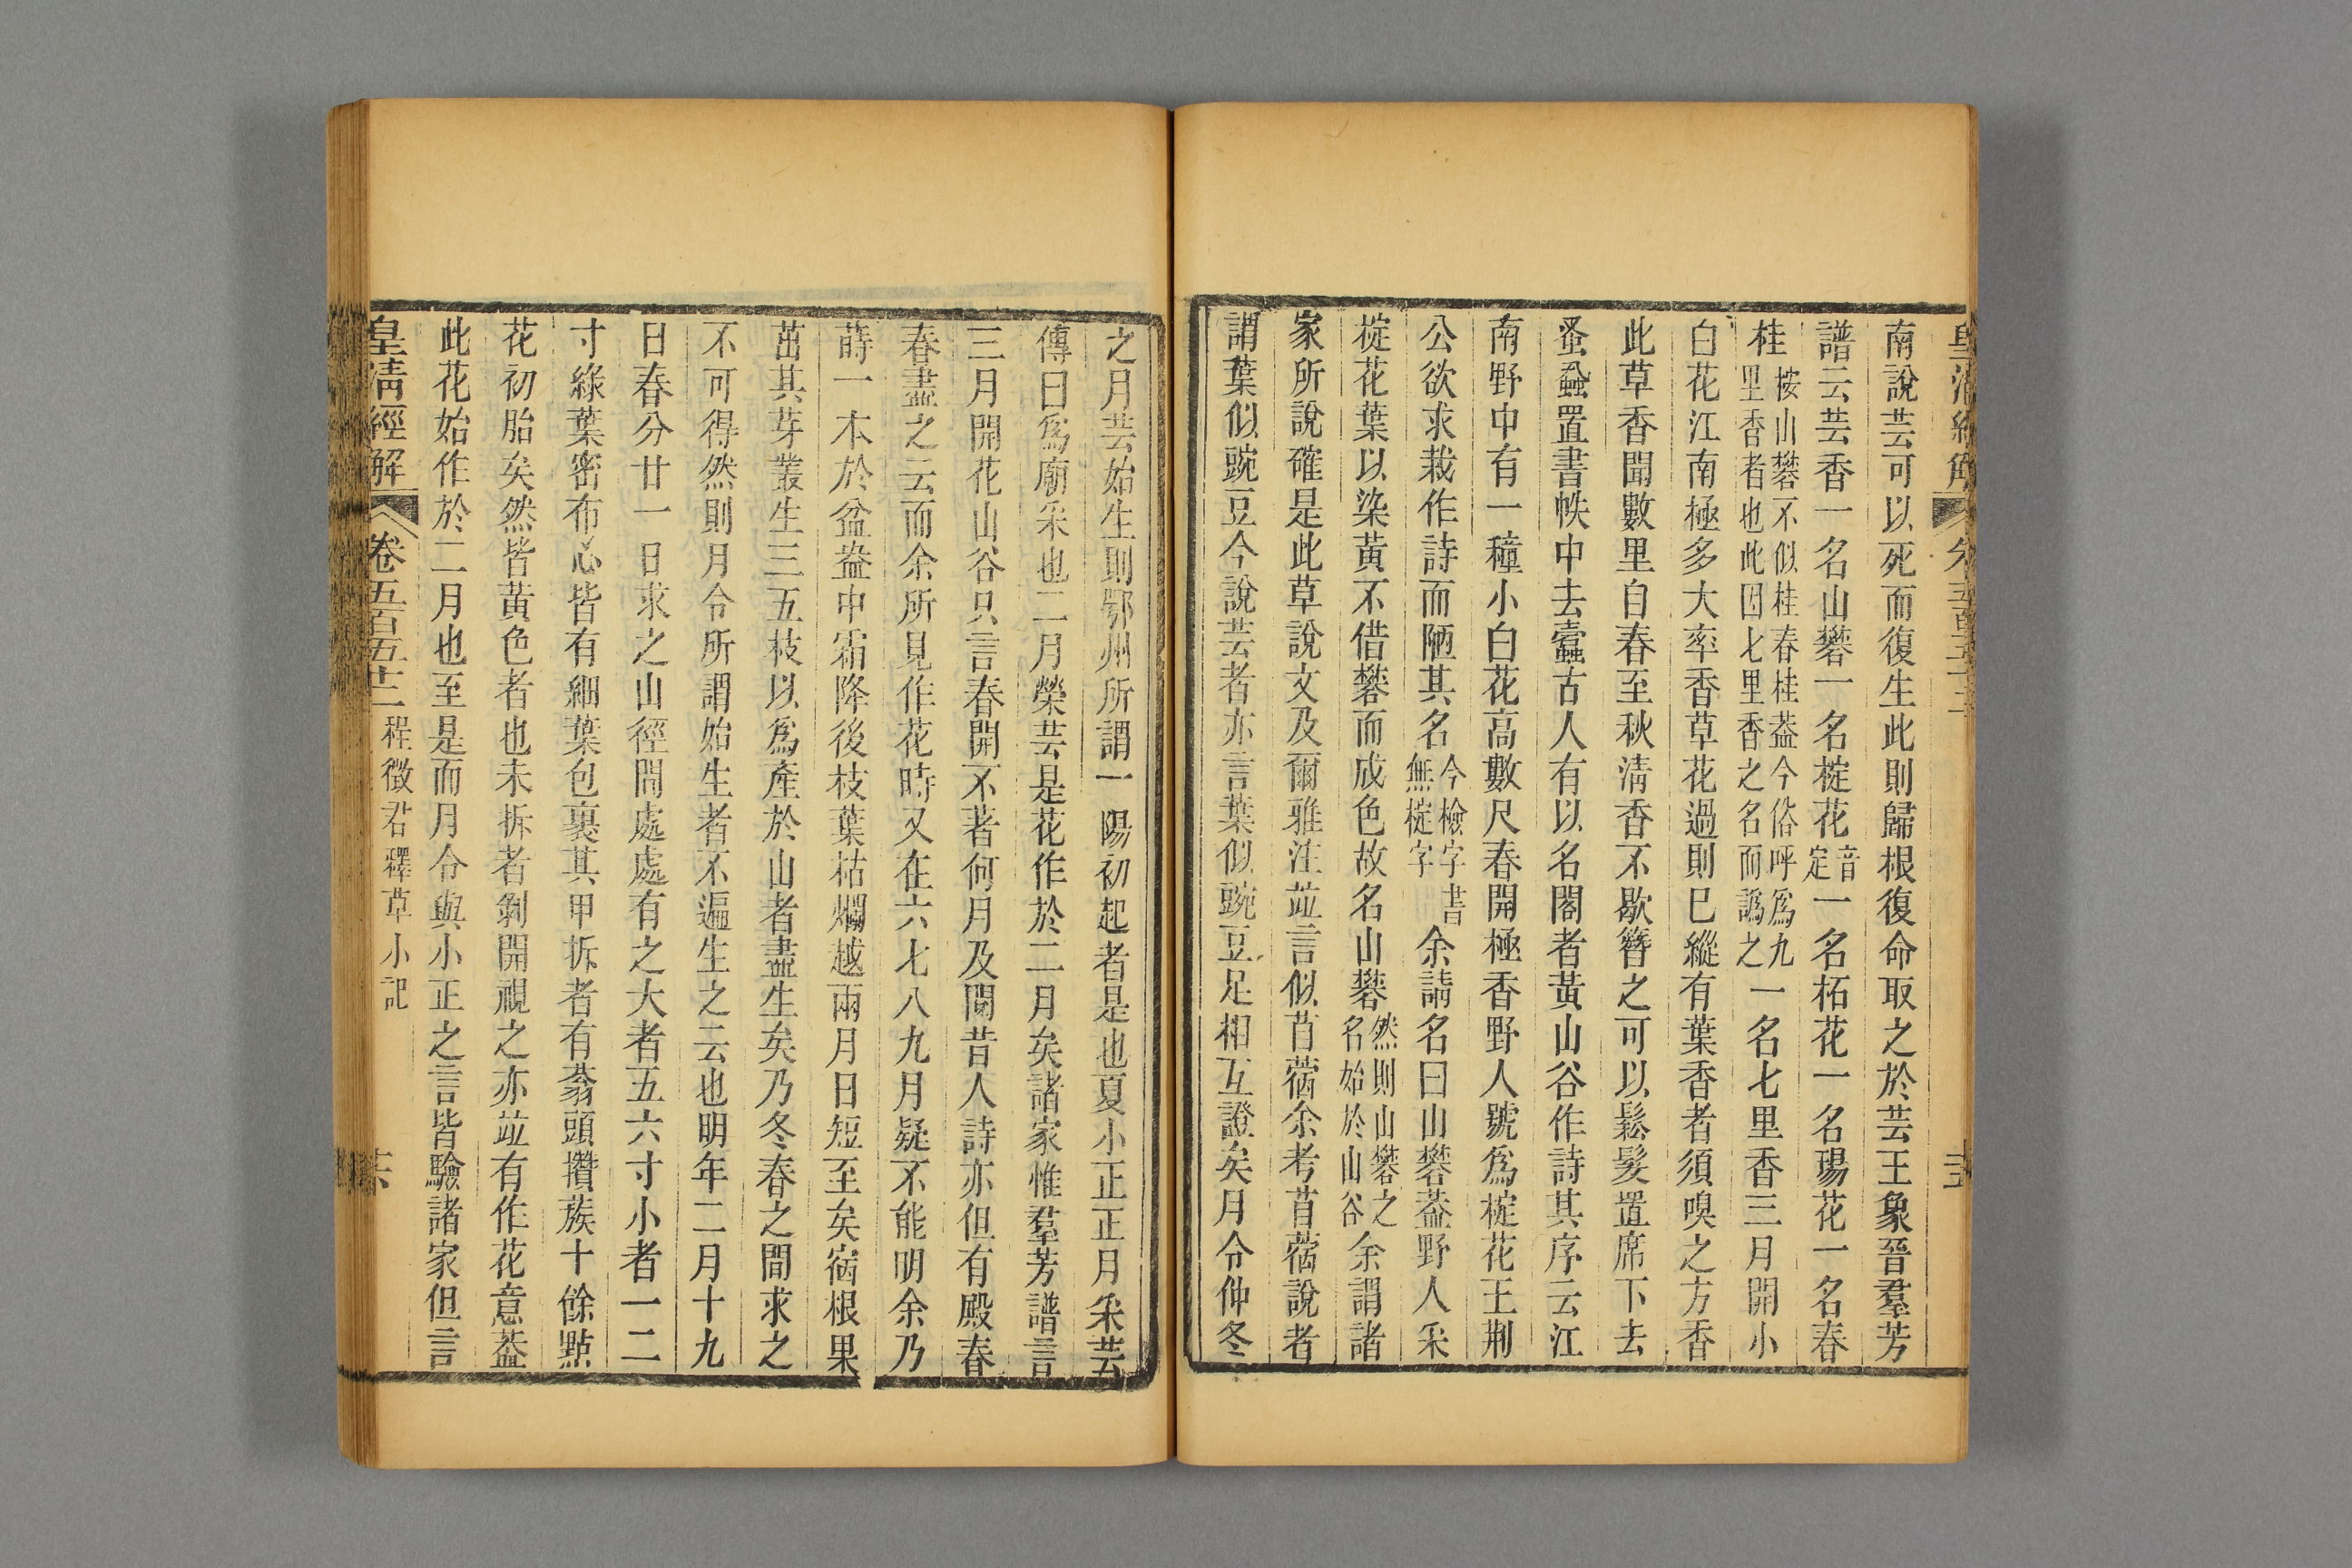 南說芸可以死而復生此則歸根復命取之於芸王象晉羣芳
譜云芸香一名山礬一名椗花音定一名柘花一名瑒花一名春
桂桉山礬不似桂春桂葢今俗呼爲九里香者也此因七里香之名而譌之一名七里香三月開小
白花江南極多大率香草花過則已縱有葉香者須嗅之方香
此草香聞數里自春至秋淸香不歇簪之可以鬆髮置席下去
蚤蝨置書帙中去蠹古人有以名閣者黃山谷作詩其序云江
南野中有一種小白花高數尺春開極香野人號爲椗花王荆
公欲求栽作詩而陋其名今檢字書無椗字余請名曰山礬葢野人采
椗花葉以染黃不借礬而成色故名山礬然則山礬之名始於山谷余謂諸
家所說確是此草說文及爾雅注竝言似苜蓿余考苜蓿說者
謂葉似豌豆今說芸者亦言葉似豌豆足相互證矣月令仲冬
之月芸始生則鄂州所謂一陽初起者是也夏小正正月采芸
傳曰爲廟采也二月榮芸是花作於二月矣諸家惟羣芳譜言
三月開花山谷只言春開不著何月及閱昔人詩亦但有殿春
春盡之云而余所見作花時又在六七八九月疑不能明余乃
蒔一本於盆盎中霜降後枝葉枯爛越兩月日短至矣宿根果
茁其芽叢生三五枝以爲產於山者盡生矣乃冬春之間求之
不可得然則月令所謂始生者不遍生之云也明年二月十九
日春分廿一日求之山徑間處處有之大者五六寸小者一二
寸綠葉密布心皆有細葉包裹其甲拆者有蓊頭攢蔟十餘點
花初胎矣然皆黃色者也未拆者剝開視之亦竝有作花意葢
此花始作於二月也至是而月令與小正之言皆驗諸家但言
皇淸經解 卷五百五十二 程徵君釋草小記